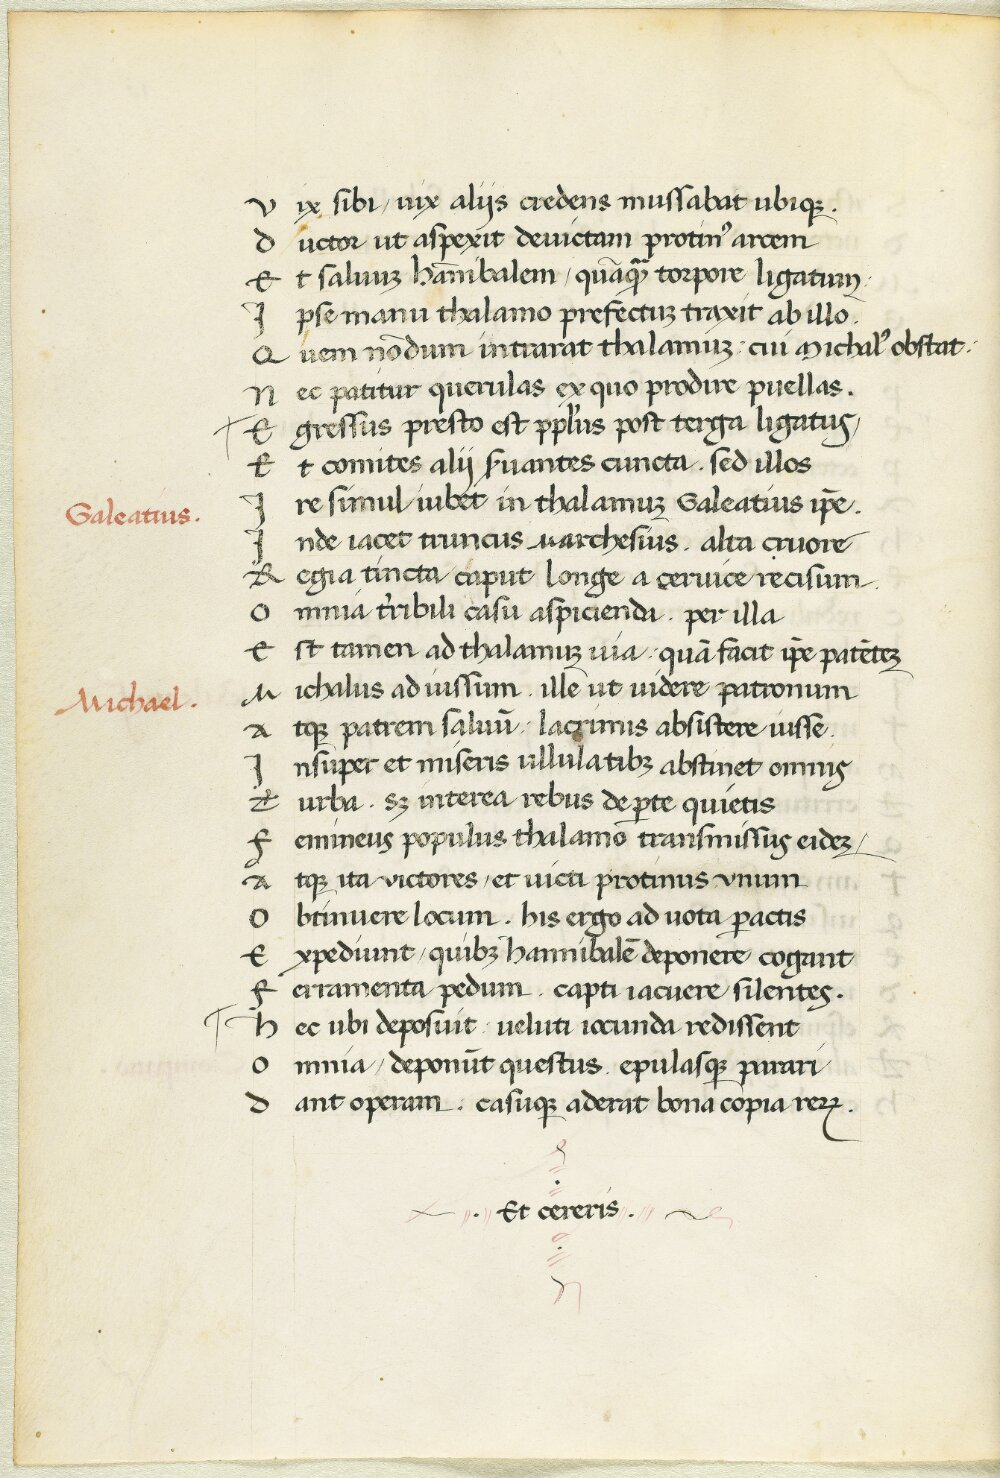 Vix sibi / uix aliis credens mussabat ubiqꝫ.
Ductor ut aspexit deuictam protinꝰ arcem
Et saluuꝫ han̄ibalem / quāqꝫ torpore ligatum.
Ipse manu thalamo prefectuꝫ traxit ab illo.
Quem nōdum intrarat thalamuꝫ. cui Michalꝰ obstat.
Nec patitur querulas ex quo prodire puellas.
Egressus presto est ppl̓us post terga ligatus /
Et comites alij ẜuantes cuncta. sed illos
Galeatius.
Ire simul iubet in thalamuꝫ Galeatius ip̄e.
Inde iacet truncus Marchesius. alta cruore
Regia tincta / caput longe a ceruice recisum.
Omnia tr̓ribili casu aspicienda. per illa
Est tamen ad thalamuꝫ uia. quā facit ip̄e patēteꝫ
Michael.
Michalus ad iussum. ille ut uidere patronum
Atqꝫ patrem saluū. lacrimis absistere iusse.
Insuper et miseris ullulatibꝫ abstinet omnis
Turba. Sꝫ interea rebus de ꝑte quietis
Femineus populus thalamo transmissus eideꝫ /
Atqꝫ ita victores / et uicti protinus vnum
Obtinuere locum. his ergo ad uota ꝑactis
Expediunt / quibꝫ hannibalē deponere cogant
Ferramenta pedum. capti iacuere silentes.
Hec ubi deposuit. ueluti iocunda redissent
Omnia / deponūt questus. epulasqꝫ parari
Dant operam. casuqꝫ aderat bona copia reꝝ.
. Et cereris .